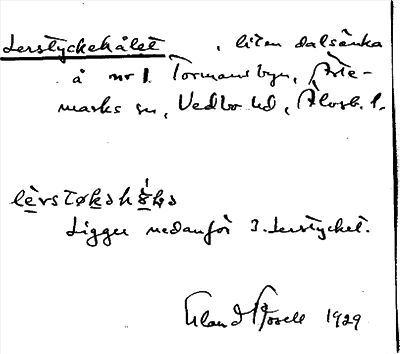 Lerstyckehålet, liten dalsänka
å nr 1 Tormansbyn, Ärte-
marks sn, Vedbo hd, Älvsb. l.
Ligger nedanför 3. Lerstycket.
Erland Rosell 1929